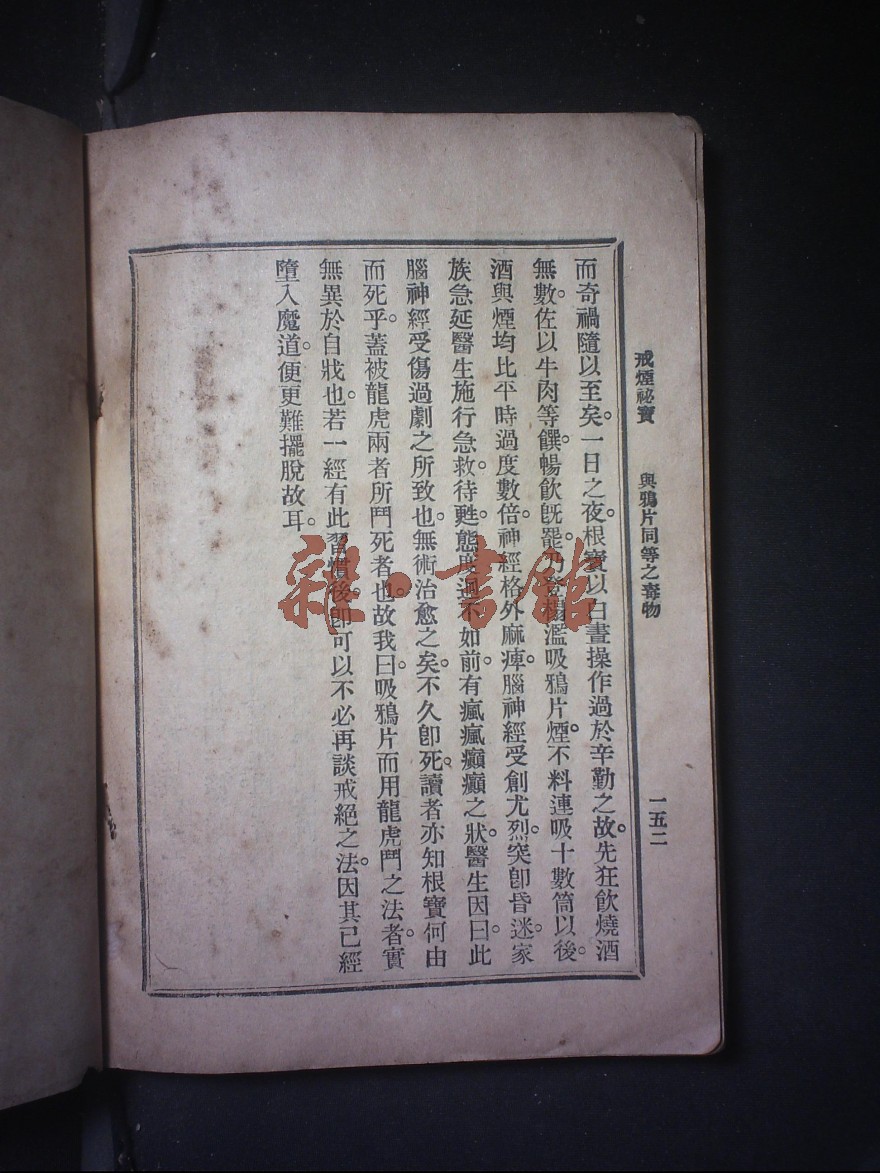 戒煙祕寶　與鴉片同等之毒物　一五二
而奇禍隨以至矣。一日之夜。根寶以白晝操作過於辛勤之故。先狂飲燒酒
無數。佐以牛肉等饌。暢飲旣罷。乃登榻濫吸鴉片煙。不料連吸十數筒以後。
酒與煙均比平時過度數倍。神經格外麻痺。腦神經受創尤烈。突卽昏迷。家
族急延醫生施行急救。待甦。態度迥不如前。有瘋瘋癲癲之狀。醫生因曰。此
腦神經受傷過劇之所致也。無術治愈之矣。不久卽死。讀者亦知根寶何由
而死乎。蓋被龍虎兩者所鬥死者也。故我曰。吸鴉片而用龍虎鬥之法者。實
無異於自戕也。若一經有此習慣後。卽可以不必再談戒絕之法。因其已經
墮入魔道。便更難擺脫故耳。
雜·書館